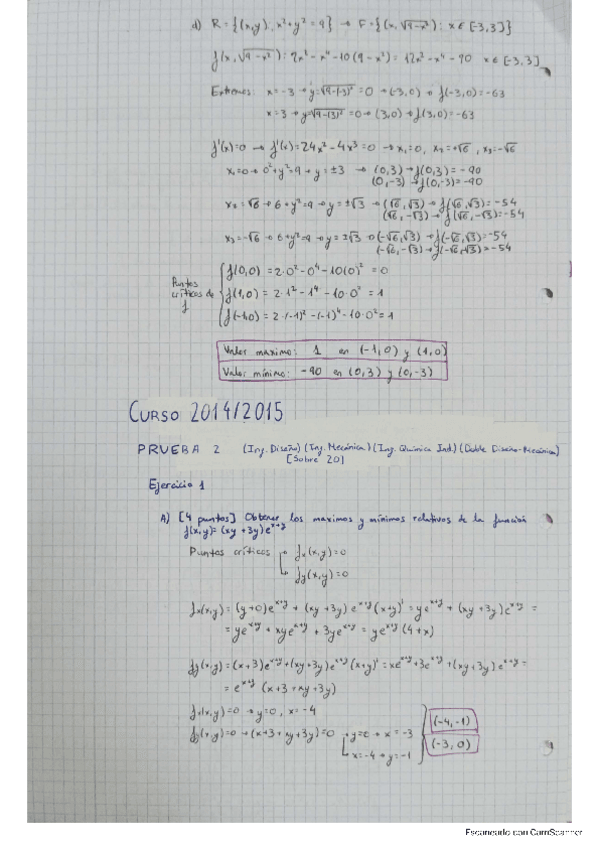 d) R = {(x,y): x²+y² = 9} → F = {(x, √9-x²): x ∈ [-3,3]}
f(x, √9-x²): 2x²-x⁴-10(9-x²) = 12x²-x⁴-90 x ∈ [-3,3]
Entonces: x=-3 → y=√9-(-3)² = 0 → (-3,0) → f(-3,0) = -63
x=3 → y=√9-(3)² = 0 → (3,0) → f(3,0) = -63
f'(x)=0 → f'(x)=24x²-4x³=0 → x₁=0, x₂=+√6, x₃=-√6
x₁=0 → 0²+y²=9 → y=±3 → (0,3) → f(0,3) = -90
(0,-3) → f(0,-3) = -90
x₂=√6 → 6+y²=9 → y=±√3 → (√6,√3) → f(√6,√3) = -54
(√6,-√3) → f(√6,-√3) = -54
x₃=-√6 → 6+y²=9 → y=±√3 → (-√6,√3) → f(-√6,√3) = -54
(-√6,-√3) → f(-√6,√3) = -54
Puntos críticos de f
f(0,0) = 2·0²-0⁴-10(0)² = 0
f(1,0) = 2·1²-1⁴-10·0² = 1
f(-1,0) = 2·(-1)²-(-1)⁴-10·0² = 1
Valor maximo: 1 en (-1,0) y (1,0)
Valor mínimo: -90 en (0,3) y (0,-3)
CURSO 2014/2015
PRUEBA 2 (Ing. Diseño) (Ing. Mecánica) (Ing. Química Ind) (Doble Diseño-Mecánica)
[Sobre 20]
Ejercicio 1
A) [4 puntos] Obtener los maximos y mínimos relativos de la función
f(x,y) = (xy+3y)e^x+y
Puntos críticos → fx(x,y)=0
→ fy(x,y)=0
fx(x,y) = (y+0)e^x+y + (xy+3y)e^x+y (x+y)' = ye^x+y + (xy+3y)e^x+y =
= ye^x+y + xye^x+y + 3ye^x+y = ye^x+y (4+x)
fy(x,y) = (x+3)e^x+y + (xy+3y)e^x+y (x+y)' = xe^x+y + 3e^x+y + (xy+3y)e^x+y =
= e^x+y (x+3+xy+3y)
fx(x,y)=0 → y=0, x=-4
fy(x,y)=0 → (x+3+xy+3y)=0 → y=0 → x=-3
→ x=-4 → y=-1
(-4,-1)
(-3,0)
1
Escaneado con CamScanner